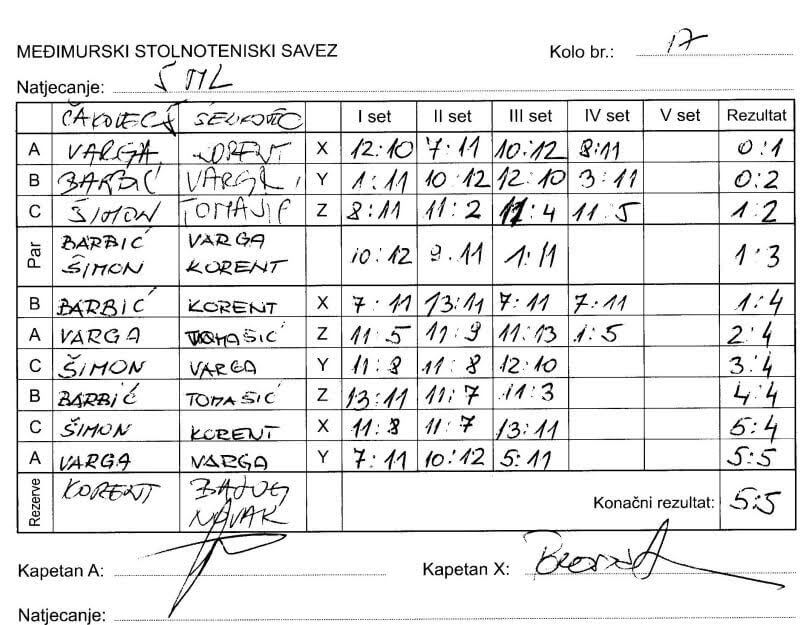 MEĐIMURSKI STOLNOTENISKI SAVEZ Kolo br.: 17
Natjecanje: ŠML
ČAKOVEC I set II set III set IV set V set Rezultat
A VARGA KORENT X 12:10 7:11 10:12 8:11 0:1
B BARBIĆ VARGA Y 1:11 10:12 12:10 3:11 0:2
C ŠIMON TOMAŠIĆ Z 8:11 11:2 11:4 11:5 1:2
Par BARBIĆ VARGA 10:12 9.11 1:11 1:3
ŠIMON KORENT
B BARBIĆ KORENT X 7:11 13:11 7:11 7:11 1:4
A VARGA TOMAŠIĆ Z 11:5 11:9 11:13 1:5 2:4
C ŠIMON VARGA Y 11:8 11:8 12:10 3:4
B BARBIĆ TOMAŠIĆ Z 13:11 11:7 11:3 4:4
C ŠIMON KORENT X 11:8 11:7 13:11 5:4
A VARGA VARGA Y 7:11 10:12 5:11 5:5
Rezerve KORENT NOVAK Konačni rezultat: 5:5
Kapetan A: Kapetan X:
Natjecanje: